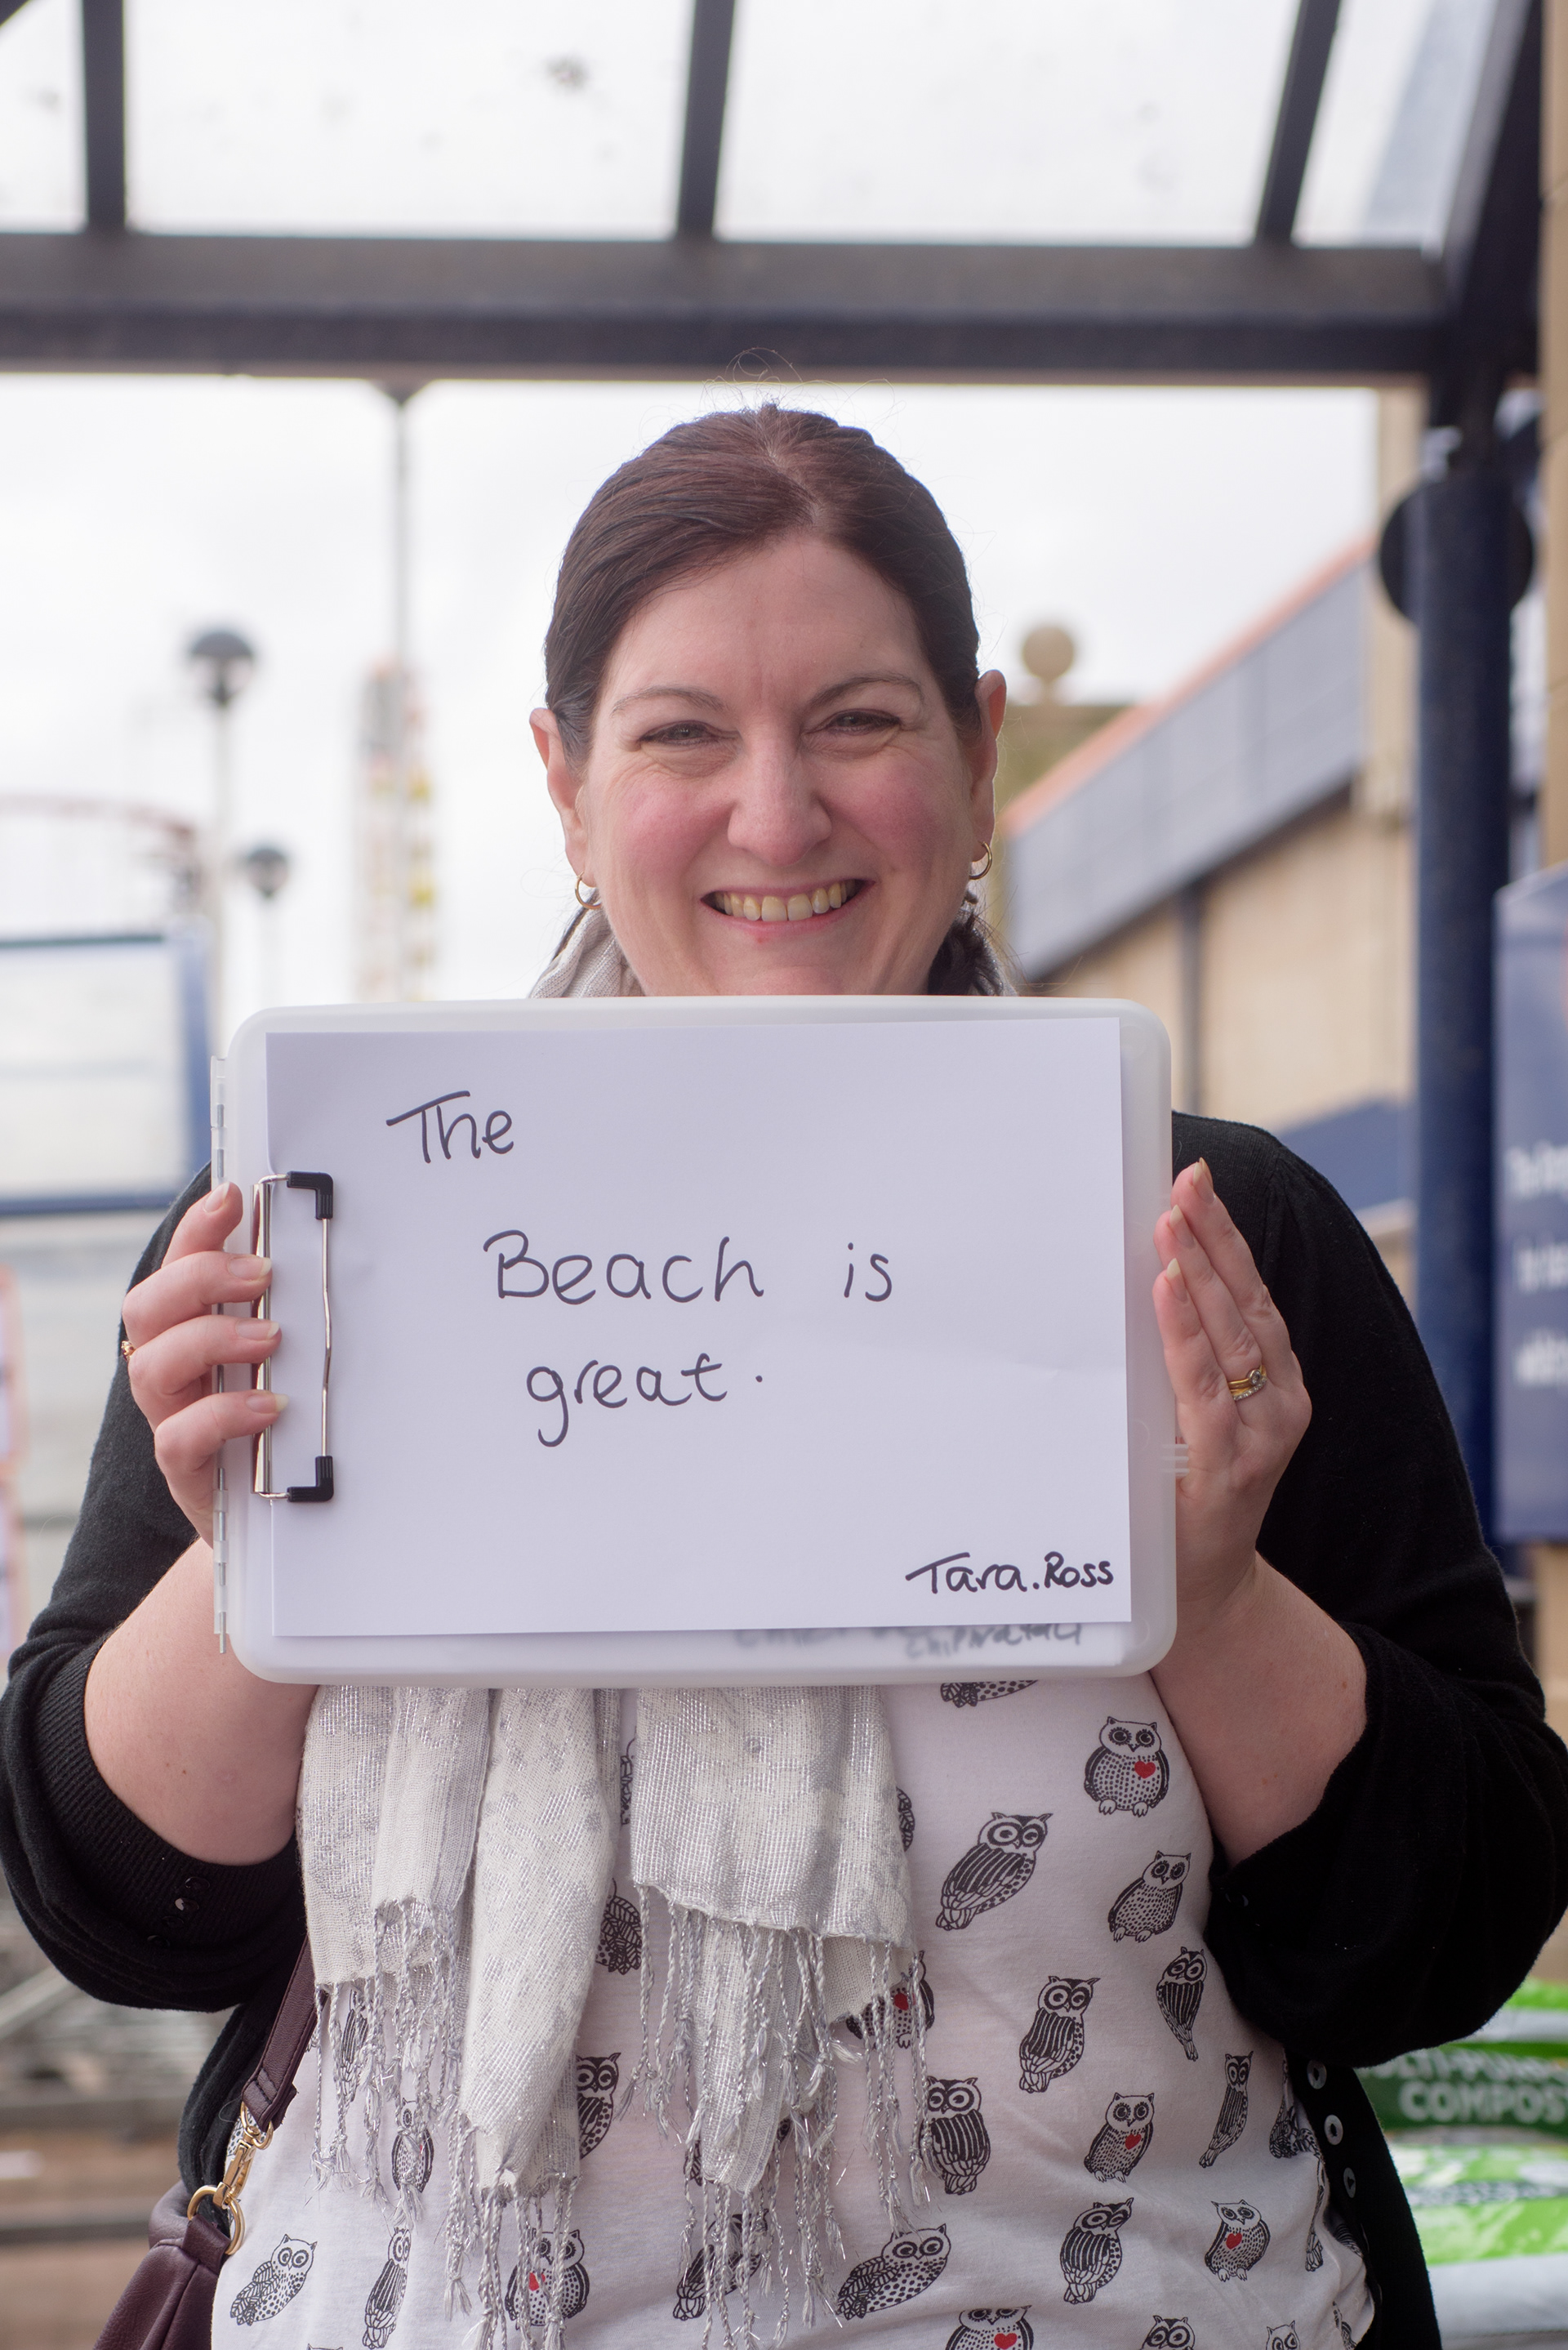 The
Beach is
great.
Tara.Ross
COMPOS